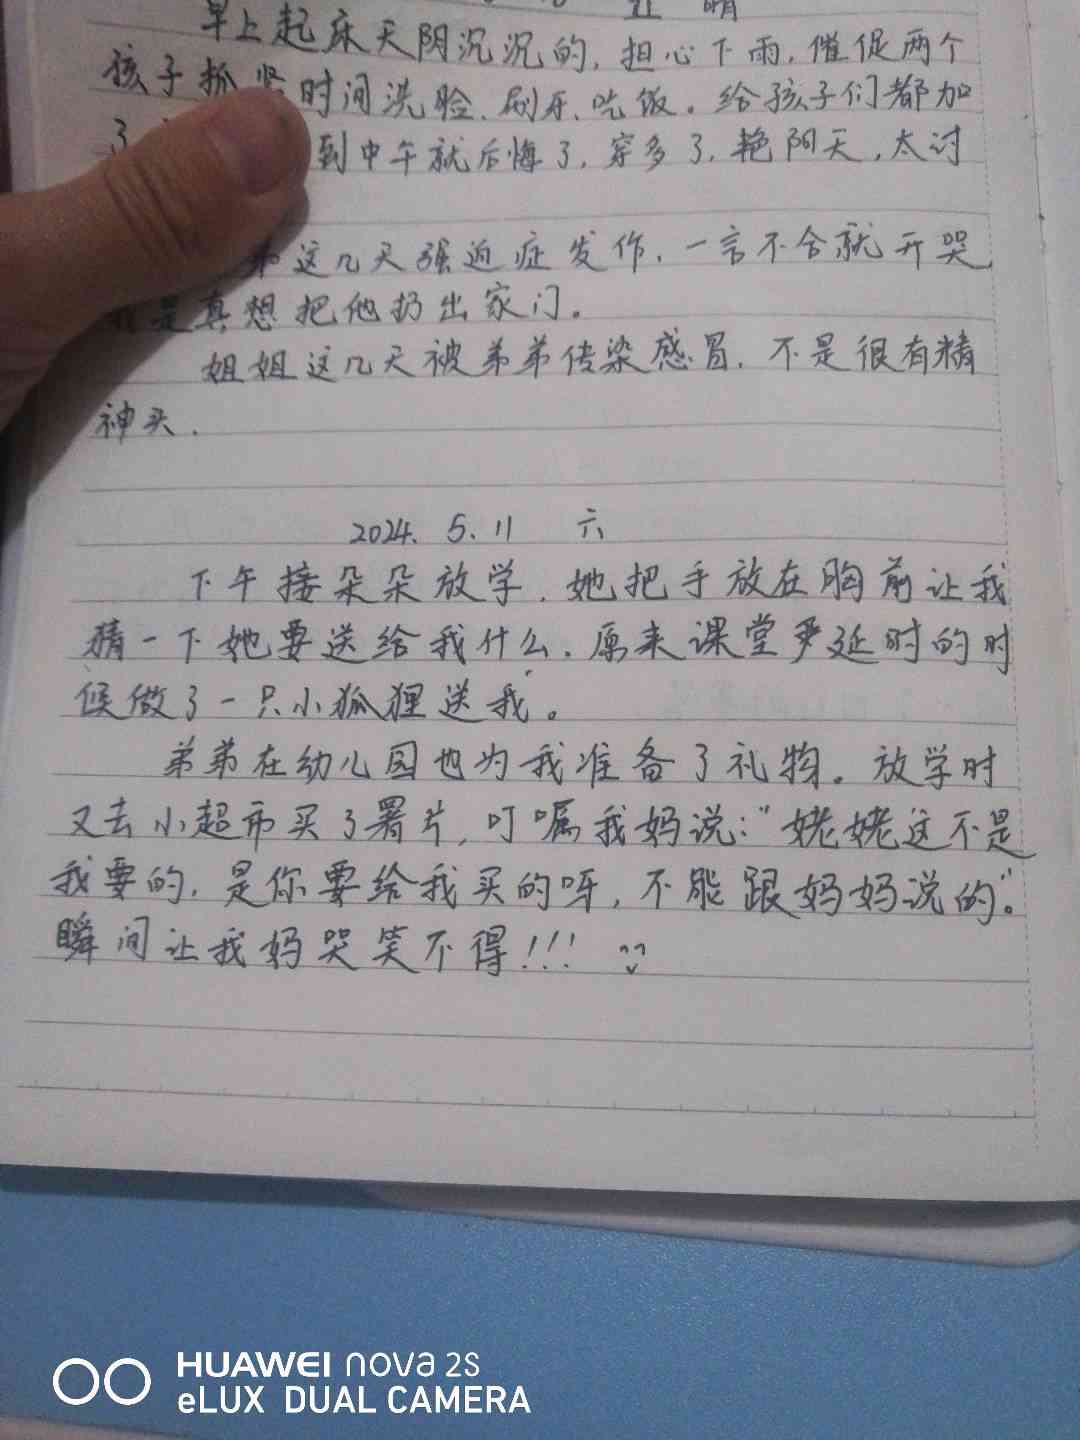 五 晴
早上起床天阴沉沉的，担心下雨，催促两个
孩子抓紧时间洗脸、刷牙、吃饭。给孩子们都加
了 到中午就后悔了，穿多了，艳阳天，太讨
弟这几天强迫症发作，一言不合就开哭
我是真想把他扔出家门。
姐姐这几天被弟弟传染感冒，不是很有精
神头.
2024. 5. 11 六
下午接朵朵放学，她把手放在胸前让我
猜一下她要送给我什么，原来课堂延时的时
候做了一只小狐狸送我。
弟弟在幼儿园也为我准备了礼物。放学时
又去小超市买了署片，叮嘱我妈说：“姥姥这不是
我要的，是你要给我买的呀，不能跟妈妈说的”。
瞬间让我妈哭笑不得！！！
HUAWEI nova 2s
eLUX DUAL CAMERA